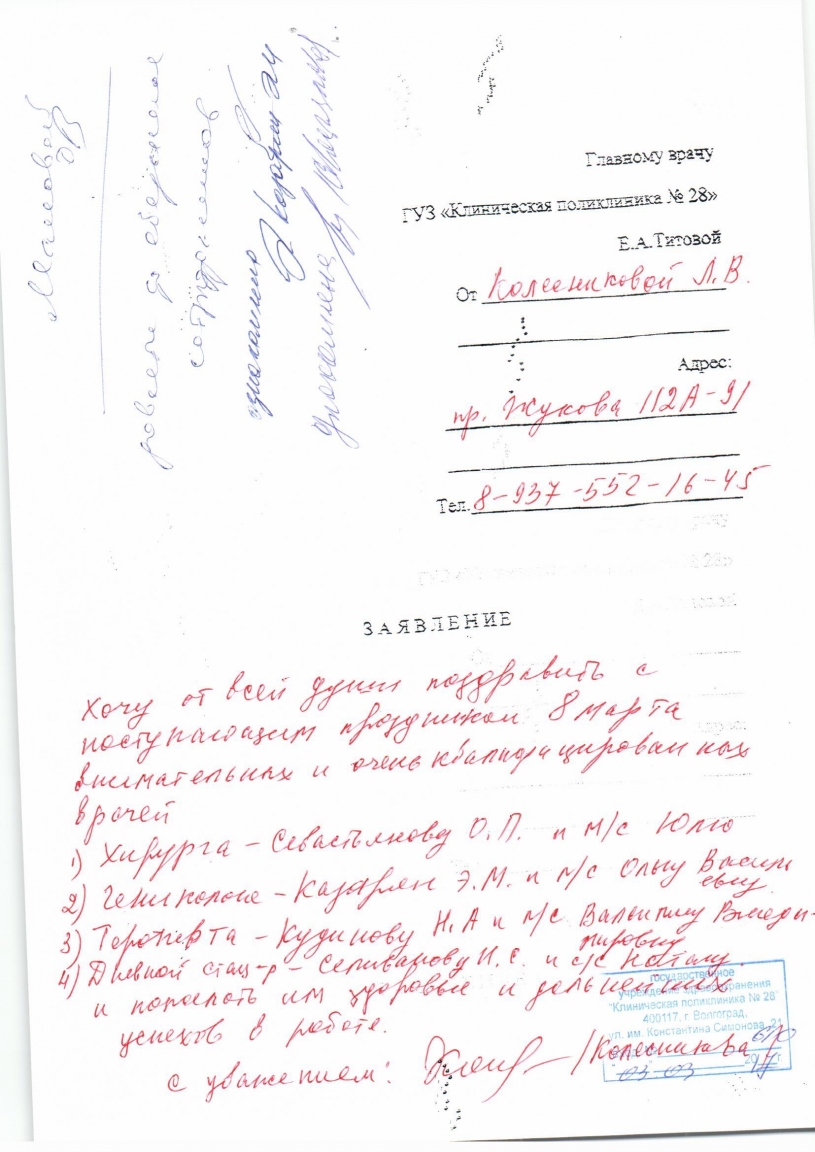 Главному врачу
ГУЗ «Клиническая поликлиника № 28»
Е.А.Титовой
От Колесниковой Л.В.
Адрес:
пр. Жукова 112А-91
Тел. 8-937-552-16-45
довести до
сотрудников
ознакомлена
Ознакомлена
ЗАЯВЛЕНИЕ
Хочу от всей души поздравить с
поступающим праздником 8 марта
внимательных и очень квалифицированных
врачей
1) Хирурга – Севастьянову О.П. и м/с Юлю
2) Геникологе – Казарян Э.М. и м/с Ольгу Василь
евну
3) Терапевта – Кудинову Н.А и м/с Валентину Влади-
мировну
4) Дневной стац-р – Селиванову И.С. и с/с Наташу.
и пожелать им здоровье и дальнейших
успехов в работе.
с уважением: /Колесникова
государственное
учреждение здравоохранения
"Клиническая поликлиника № 28"
400117, г. Волгоград,
ул. им. Константина Симонова, 21
03 03 20